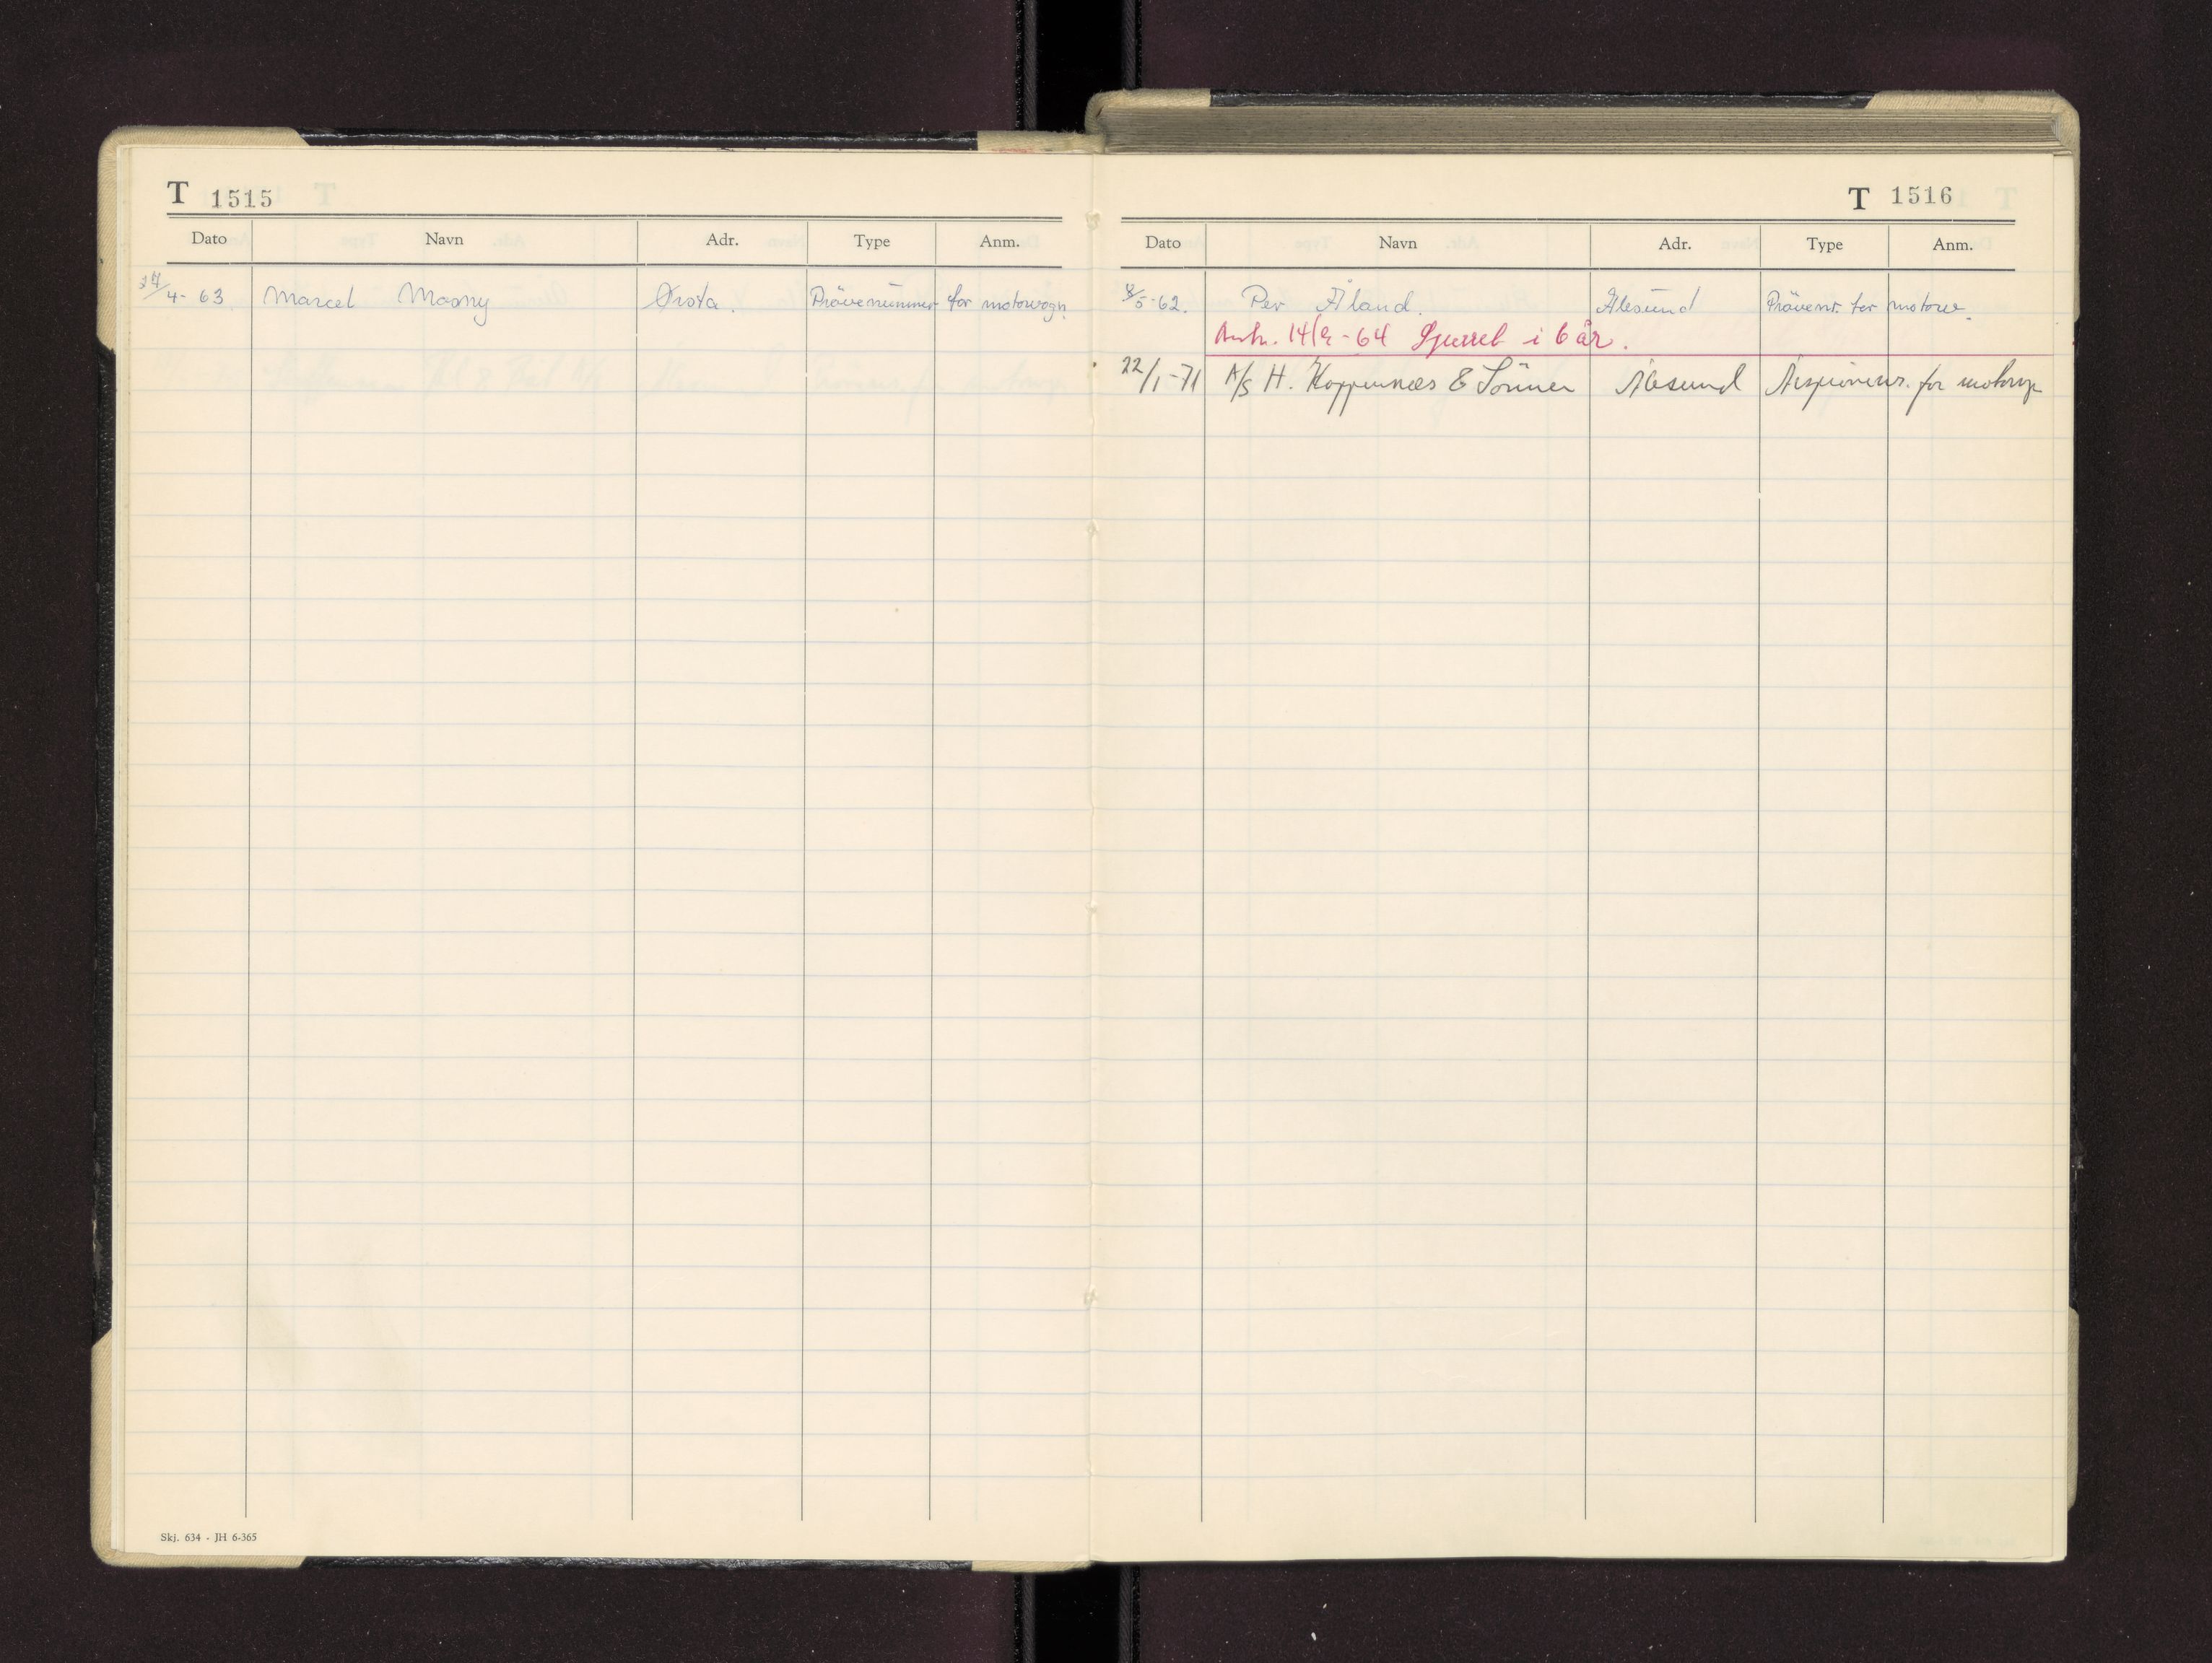 T 1515
Dato Navn Adr. Type Anm.
4-63. Marcel Masny Ørsta. Prövenummer for motorvogn.
Skj. 634 - JH 6-365
T 1516
Dato Navn Adr. Type Anm.
8/5-62. Per Åland. Ålesund Prövenr. for motorv.
14/9-64 Sperret i 6 år.
22/1-71 A/S H. Koppernæs & Sönner Ålesund Årsprövenr. for motorvgn